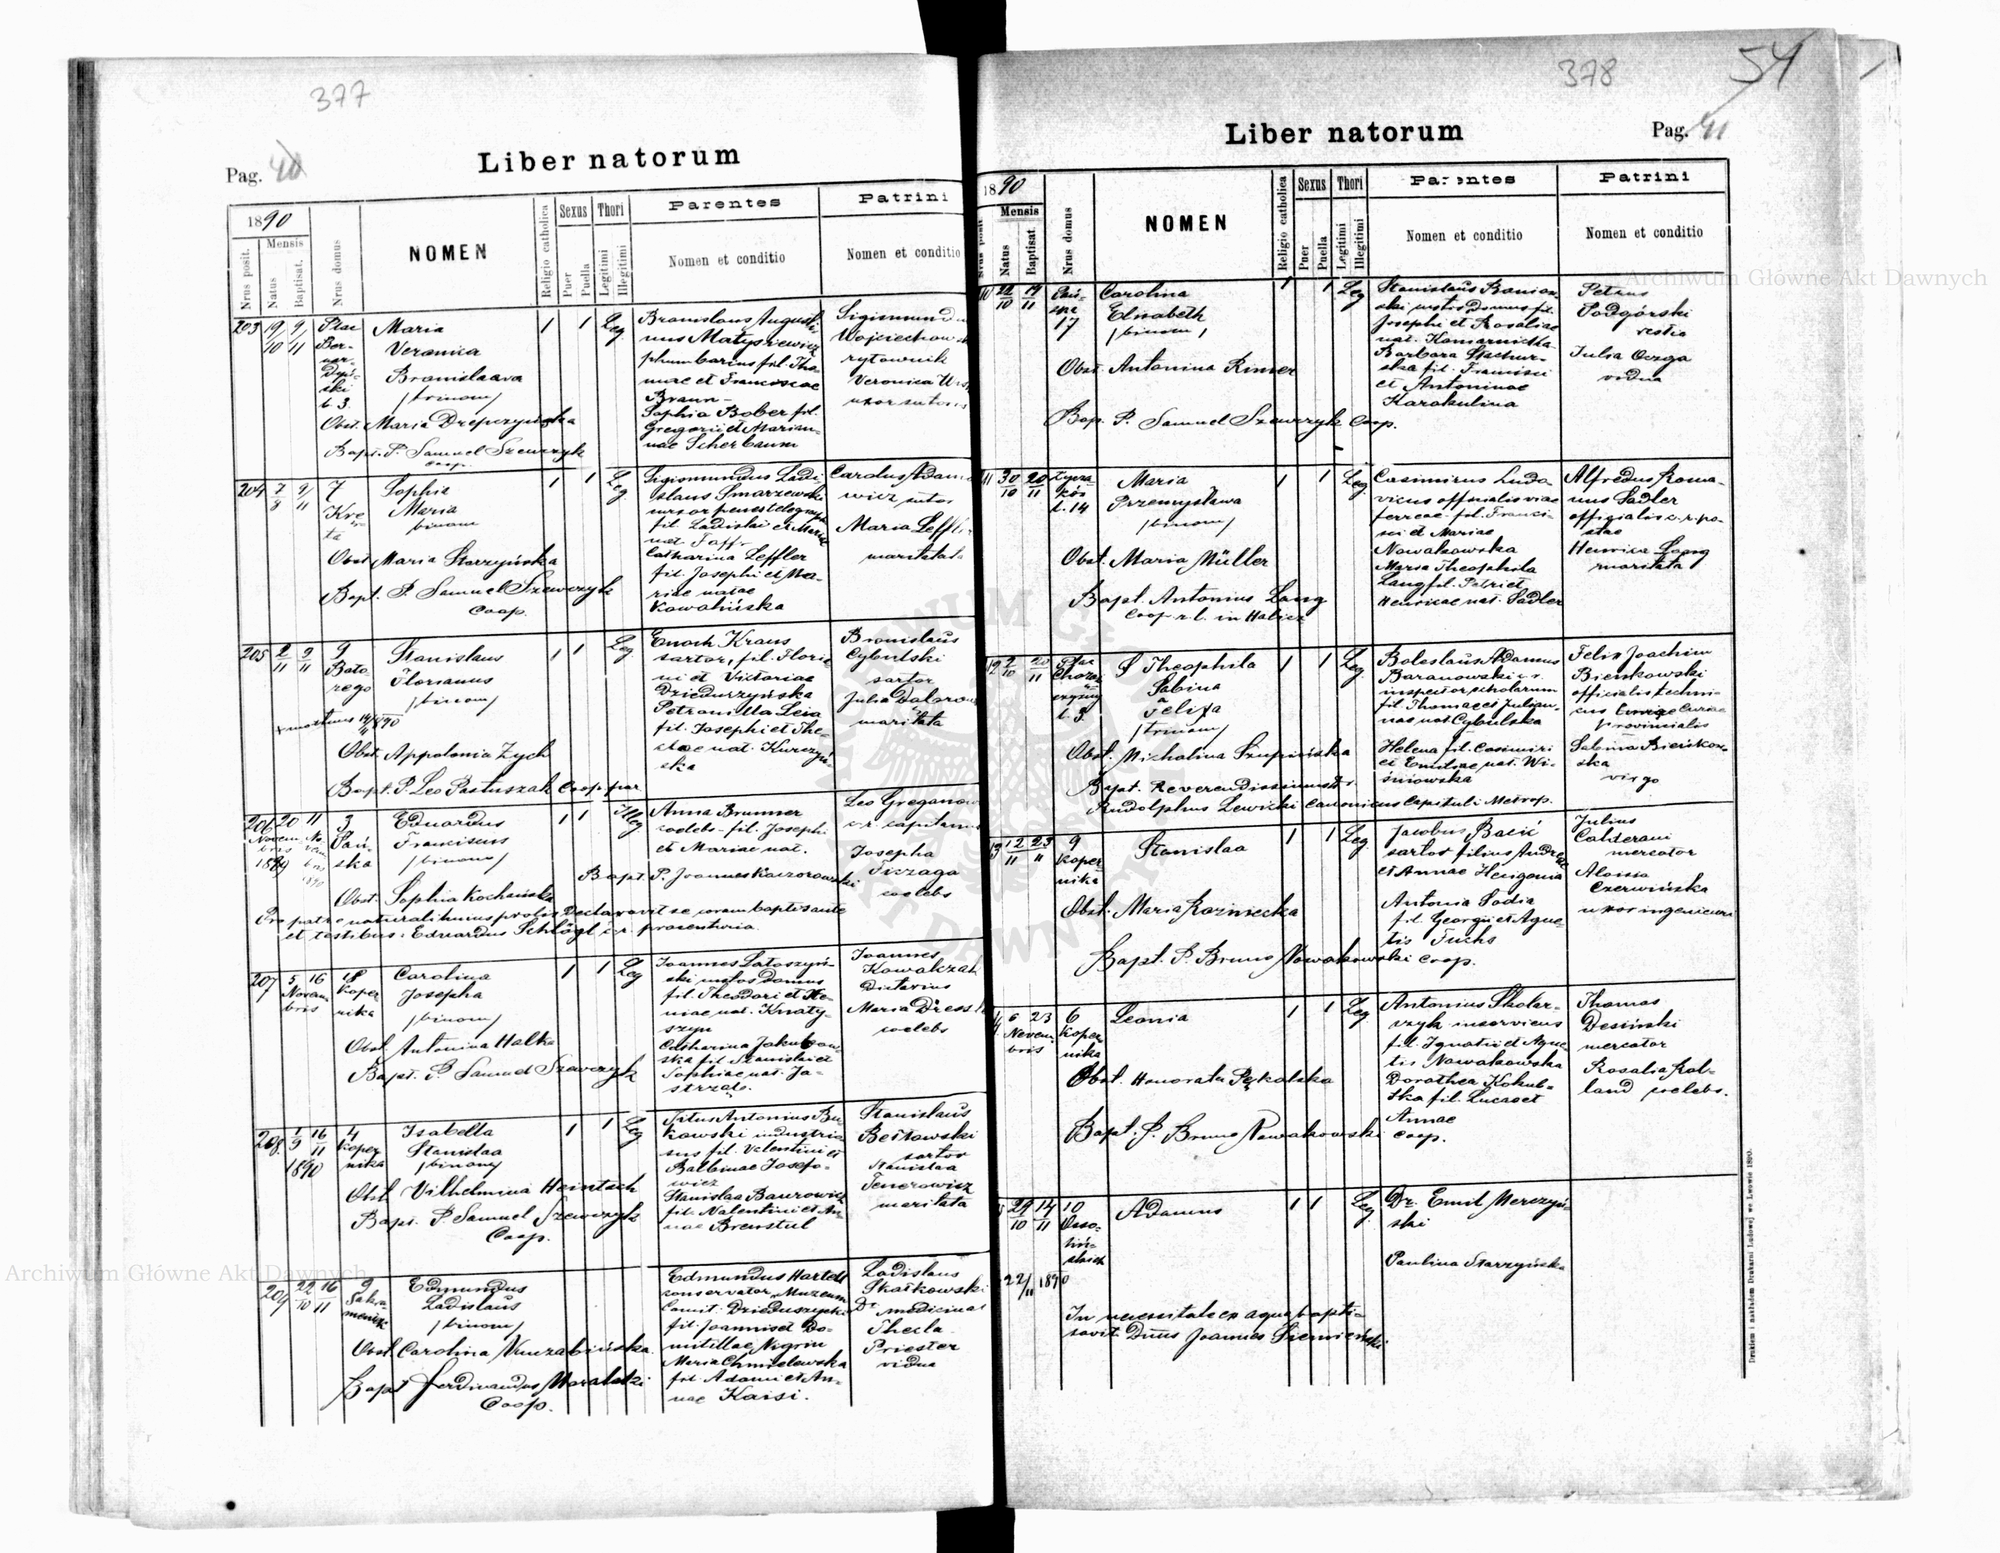 377
Liber natorum
Pag. 40
1890
Mensis
Nrus posit.
Natus
Baptisat.
Nrus domus
NOMEN
Religio catholica
Sexus
Puer
Puella
Thori
Legitimi
Illegitimi
Parentes
Nomen et conditio
Patrini
Nomen et conditio
203 19/10 9/11
Plac
Ber-
nar-
dyń-
ski
l. 3.
Maria
Veronica
Bronislaava
/trinom/
Obst. Maria Drepczyńska
Bapt. P. Samuel Szewczyk
coop.
1 1 Leg.
Bronislaus Augusti-
nus Matysiewicz
plumbarius fil. Tho-
mae et Franciscae
Braun-
Sophia Bober fil.
Gregorii et Marian-
nae Scherbaum
Sigismundus
Wojciechow
rytownik
Veronica
uxor sutoris
204 7/8 9/11
7
Sophia
Maria
binom
Obst. Maria Starzyńska
Bapt. P. Samuel Szewczyk
Coop.
1 1 Leg.
Sigismundus Ladi-
slaus Smarzewski
fil. Ladislai et Mariae
Catharina Leffler
fil. Josephi et Ma-
riae natae
Kowalińska
Carolus Adamo-
wicz sutor
Maria Leffler
maritata
205 2/11 9/11
9
Bato-
rego
Stanislaus
Florianus
/binom/
Obst. Appolonia Zych
Bapt. P. Leo Pastuszak Coop par.
1 1 Leg.
Enoch Kraus
sartor, fil. Floria-
ni et Victoriae
Dzieduszyńska
Petronilla Leia
fil. Josephi et The-
nat. Kurczyń-
ska
Bronislaus
Cybulski
sartor
Julia
maritata
206 20 11
Novem-
bris
1889
3
Pań-
ska
Eduardus
Franciscus
/binom/
Obst. Sophia Kochańska
1 1 Illeg.
Anna Brunner
coelebs - fil. Josephi
et Mariae nat.
Bapt. P. Joannes Kaczorowski
Leo Greganow
c. r. capitan
Josepha
coelebs
Pro patre naturali hujus prolis declaravit se coram baptisante
et testibus: Eduardus Schlögl c. r.
207 5 16
Novem-
bris
18
Koper-
nika
Carolina
Josepha
/binom/
Obst. Antonina Halka
Bapt. P. Samuel Szewczyk
1 1 Leg.
Joannes Latoszyń-
ski custos domus
fil. Theodori et Xe-
niae nat. Knaty-
szyn
Catharina Jakubow-
ska fil. Stanislai et
Sophiae nat. Ja-
strząb.
Joannes
Kowalczak
Dietarius
Maria
coelebs
208 1/9 16/11
1890
4
Koper-
nika
Isabella
Stanislaa
/binom/
Obst. Vilhelmina Heintsch
Bapt. P. Samuel Szewczyk
Coop.
1 1 Leg.
Titus Antonius Bu-
kowski industria
sus fil. Valentini et
Balbinae Josefo-
wicz
Stanislaa Baurowicz
fil. Valentini et An-
nae Brenstul
Stanislaus
Bełtowski
sartor
Stanislaa
Tenerowicz
maritata
209 22/10 16/11
9
Edmundus
Ladislaus
/binom/
Obst. Carolina
Bapt. Ferdinandus Moralski
Coop.
Edmundus Hartell
conservator Muzeum
Comit. Dzieduszycki
fil. Joannis et Do-
mitillae Nigrin
Maria Chmielewska
fil. Adami et An-
nae Kaisi.
Ladislaus
Skałkowski
Dr. medicinae
Thecla
Priester
vidua
378
54
Liber natorum
Pag. 41
1890
Mensis
Nrus posit.
Natus
Baptisat.
Nrus domus
NOMEN
Religio catholica
Sexus
Puer
Puella
Thori
Legitimi
Illegitimi
Parentes
Nomen et conditio
Patrini
Nomen et conditio
10 22/10 19/11
17
Carolina
Elisabeth
/binom/
Obst. Antonina Rimer
Bap. P. Samuel Szewczyk Coop.
1 1 Leg.
Stanislaus Banian-
ski custos Domus fil.
Josephi et Rosaliae
nat. Komarnicka
Barbara Stachur-
ska fil. Francisci
et Antoninae
Karakulina
Petrus
Podgórski
restio
Julia Oczga
vidua
11 30/10 20/11
Łycza-
ków
l. 14
Maria
Przemysława
/binom/
Obst. Maria Müller
Bapt. Antonius Lang
Coop r. l. in Halicz
1 1 Leg.
Casimirus Ludo-
vicus officialis viae
ferreae fil. Franci-
sci et Mariae
Nowakowska
Maria Theophila
Lang fil. Petri et
Henricae nat. Sadler
Alfredus Roma-
nus Sadler
officialis c. r. po-
stae
Henrica Lang
maritata
12 2/10 20/11
Plac
l. 3.
Theophila
Sabina
Felixa
/trinom/
Obst. Michalina Szupińska
Bapt. Reverendissimus
Rudolphus Lewicki Canonicus Capituli Metrop.
1 1 Leg.
Boleslaus Adamus
Baranowski c. r.
inspector scholarum
fil. Thomae et Julian-
nae nat. Cybulska
Helena fil. Casimiri
et Emiliae nat. Wi-
śniowska
Felix Joachim
Bieńkowski
officialis techni-
cus
provincialis
Sabina Bieńkow-
ska
virgo
13 12/11 23/11
9
Koper-
nika
Stanislaa
Obst. Maria Rozniecka
Bapt. P. Bruno Nowakowski Coop.
1 1 Leg.
Jacobus Bacić
sartor filius Andreae
et Annae Henigonia
Antonia Sodia
fil. Georgii et Agne-
tis Fuchs
Julius
Calderani
mercator
Aloisia
Czerwińska
uxor ingenieuri
14 6 23
Novem-
bris
6
Koper-
nika
Leonia
Obst. Honorata Pękalska
Bapt. P. Bruno Nowakowski Coop.
1 1 Leg.
Antonius Skolar-
czyk inserviens
fil. Ignatii et Agne-
tis Nowakowska
Dorothea Kokul-
ska fil. Lucae et
Annae
Thomas
Desiński
mercator
Rosalia Rol-
land coelebs.
29/10 14/11
10
Osso-
liń-
skich
22/11 1890
Adamus
1 1 Leg.
Dr. Emil Merczyń-
ski
Paulina Starzyńska
In necessitate ex aqua bapti-
savit Dnus Joannes Siemieński
Drukiem i nakładem Drukarni Ludowej we Lwowie 1890.
Archiwum Główne Akt Dawnych
Archiwum Główne Akt Dawnych
ARCHIWUM GŁÓWNE AKT DAWNYCH